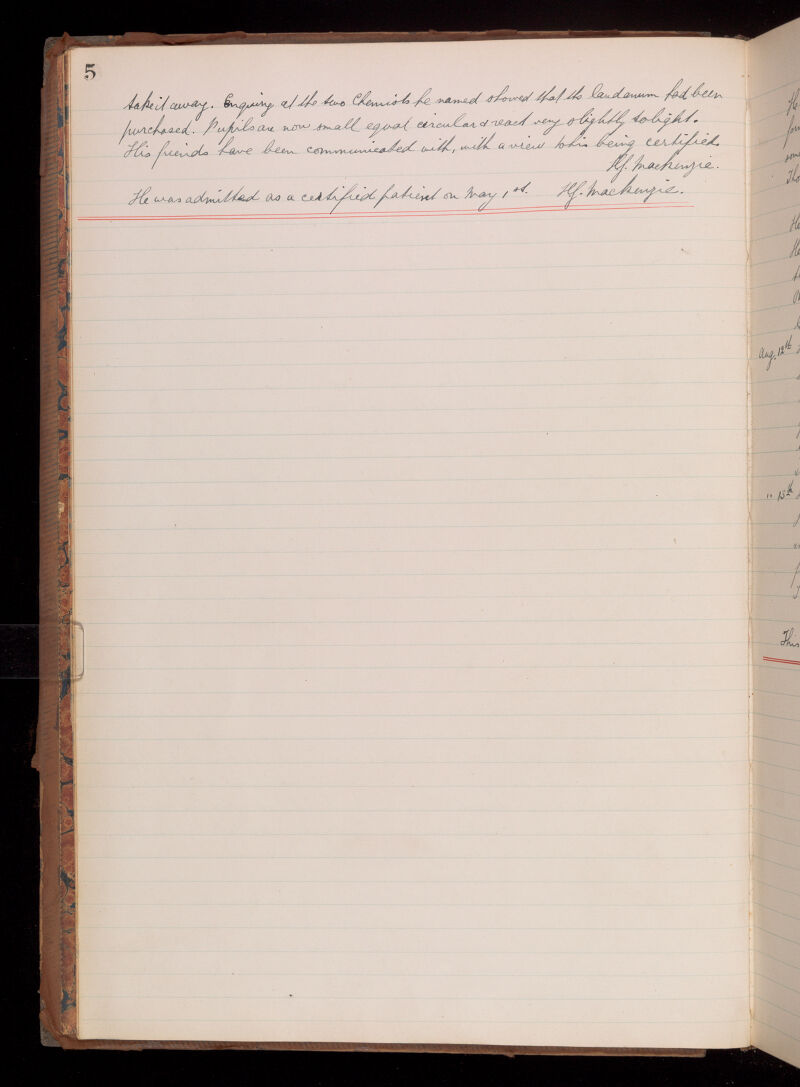 5
take it away. Enquiry at the two Chemists he named showed that the laudanum had been
purchased. Pupils are now small equal circular & react very slightly to light.
His friends have been communicated with, with a view to his being certified.
H.J. Mackenzie.
He was admitted as a certified patient on May 1st. H.J. Mackenzie.
Aug. 12th
" 15th
This